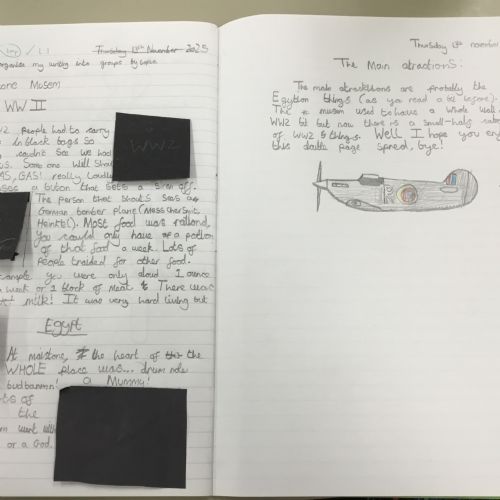 Thursday 13th November 2025
organise my writing into groups by topic
stone Musem
WW II
WW2 People had to carry
in black bags so
couldn't see we had
us. Some one will shout
GAS, GAS! really loudly
a buton that sets a siren off.
The person that shouts sees a
German bomber plane (Messherschmit,
Heinkel). Most food was rationd,
you could only have a portion
of that food a week. Lots of
People traided for other food.
example you were only aloud 1 ounce
a week or a block of meat & There was
milk! It was very hard living but
WW2
Egypt
At maistone, the heart of the
WHOLE place was... drum role
budbanmm! a Mummy!
of
the
went with
or a God.
Thursday 13th november
The Main atractions:
The main atracktions are probilly the
Egytion things (as you read a bit before).
The musem used to have a whole
WW2 bit but now there is a small-half
of WW2 things. Well I hope you enj
this doble page spred, bye!